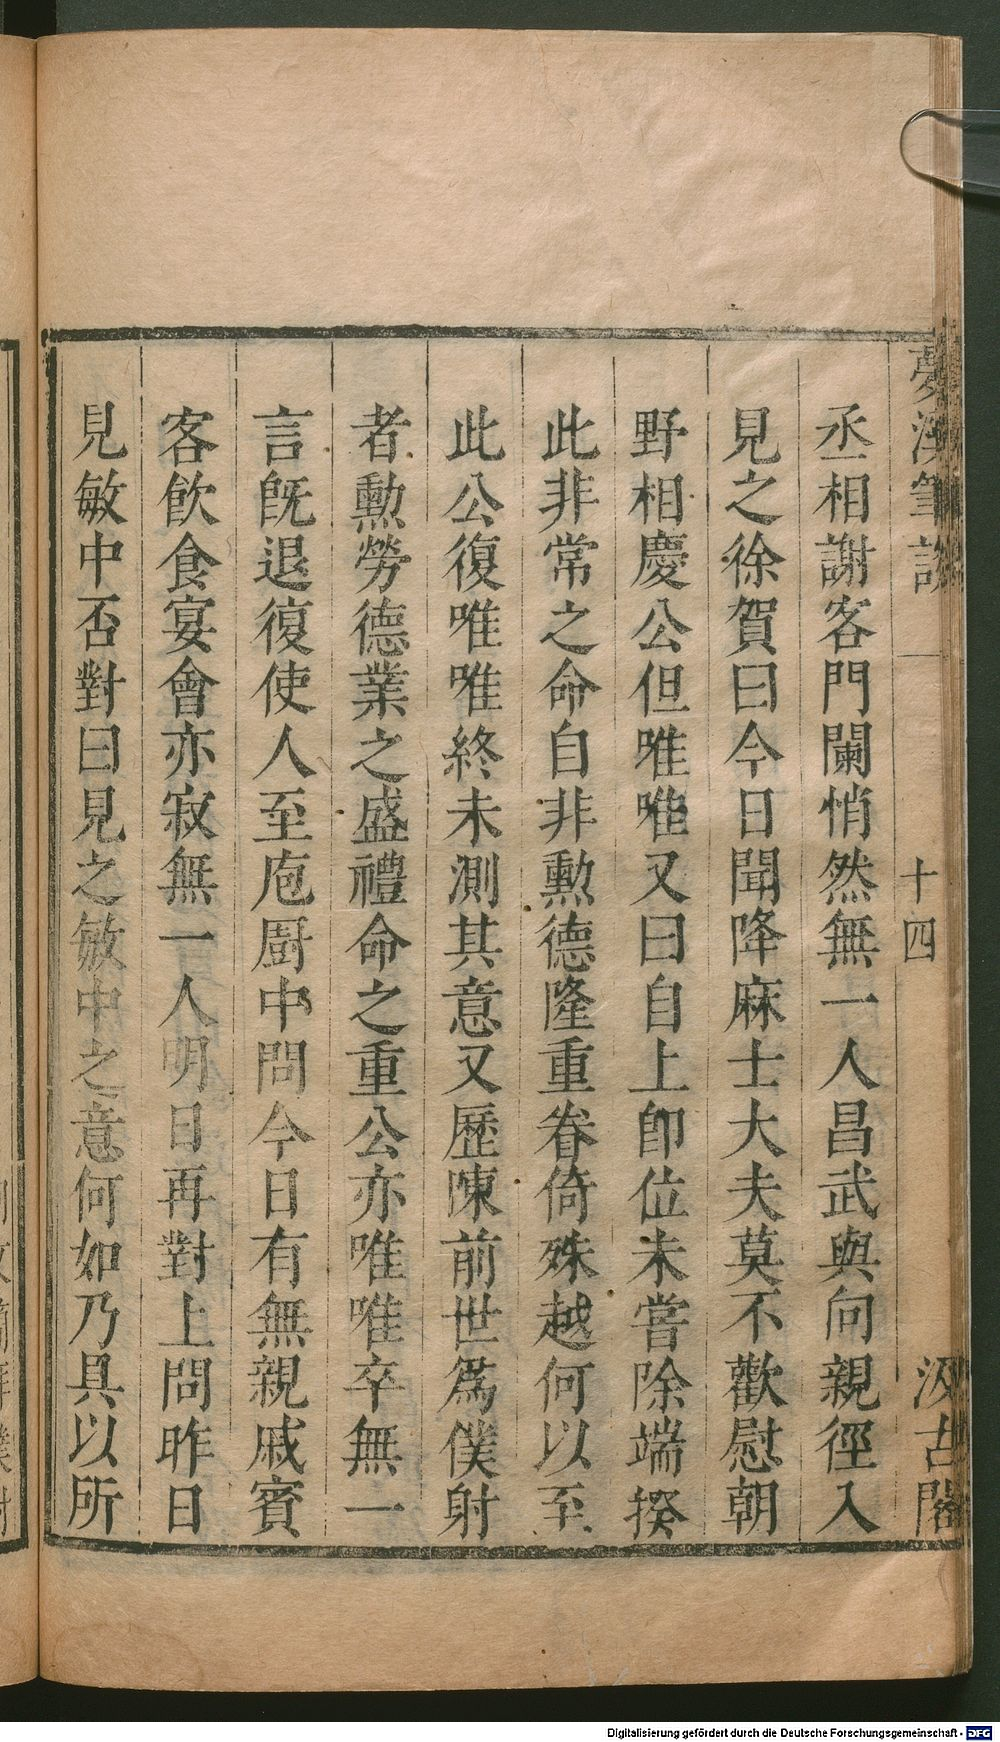 夢溪筆談 一 十四 汲古閣
丞相謝客門闌悄然無一人昌武與向親徑入
見之徐賀曰今日聞降麻士大夫莫不歡慰朝
野相慶公但唯唯又曰自上卽位未嘗除端揆
此非常之命自非勲德隆重眷倚殊越何以至
此公復唯唯終未測其意又歷陳前世爲僕射
者勲勞德業之盛禮命之重公亦唯唯卒無一
言旣退復使人至庖厨中問今日有無親戚賓
客飮食宴會亦寂無一人明日再對上問昨日
見敏中否對曰見之敏中之意何如乃具以所
Digitalisierung gefördert durch die Deutsche Forschungsgemeinschaft - DFG